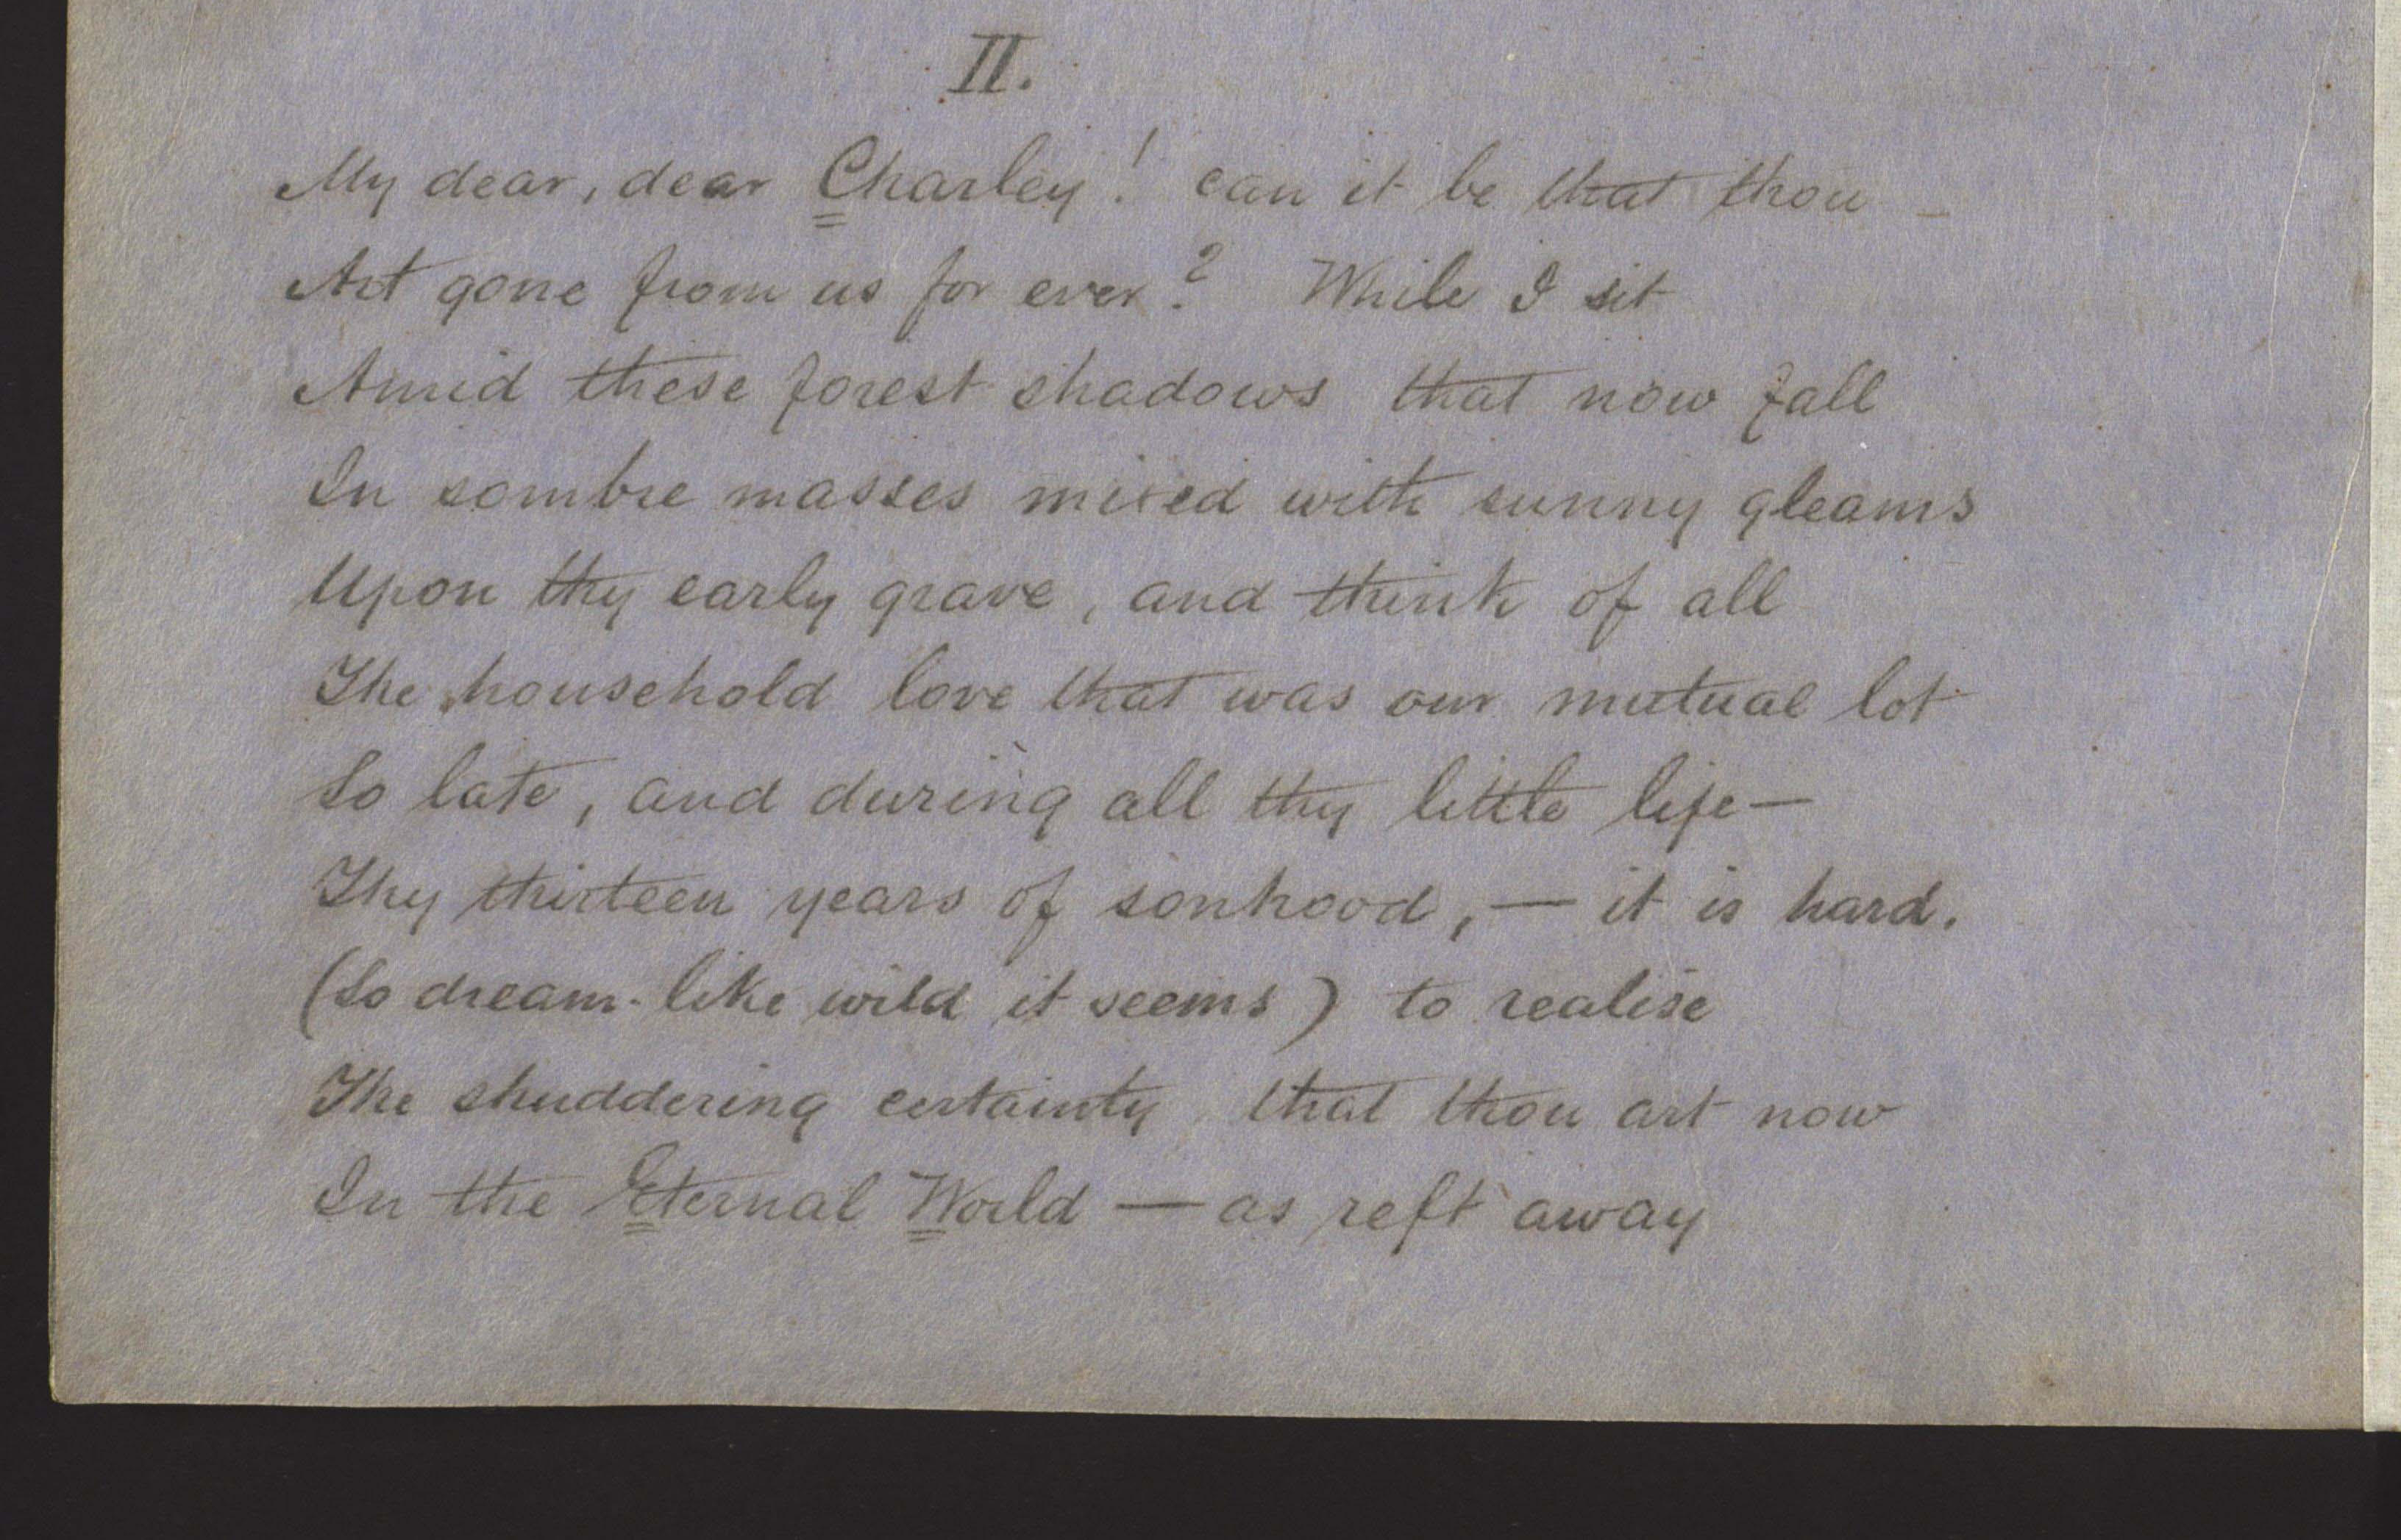 II.
My dear, dear Charley! can it be that thou –
Art gone from us for ever? While I sit
Amid these forest shadows that now fall
In sombre masses mixed with sunny gleams
Upon thy early grave, and think of all
The household love that was our mutual lot
So late, and during all thy little life—
Thy thirteen years of sonhood,— it is hard.
(So dream-like wild it seems) to realise
The shuddering certainty that thou art now
In the Eternal World — as reft away